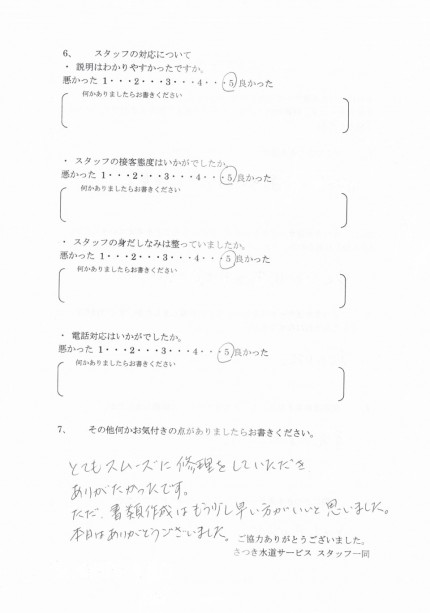 6、 スタッフの対応について
・ 説明はわかりやすかったですか。
悪かった 1・・・2・・・3・・・4・・・5 良かった
何かありましたらお書きください
・ スタッフの接客態度はいかがでしたか。
悪かった 1・・・2・・・3・・・4・・・5 良かった
何かありましたらお書きください
・ スタッフの身だしなみは整っていましたか。
悪かった 1・・・2・・・3・・・4・・・5 良かった
何かありましたらお書きください
・ 電話対応はいかがでしたか。
悪かった 1・・・2・・・3・・・4・・・5 良かった
何かありましたらお書きください
7、 その他何かお気付きの点がありましたらお書きください。
とてもスムーズに修理をしていただき
ありがたかったです。
ただ、書類作成はもう少し早い方がいいと思いました。
本日はありがとうございました。
ご協力ありがとうございました。
さつき水道サービス スタッフ一同